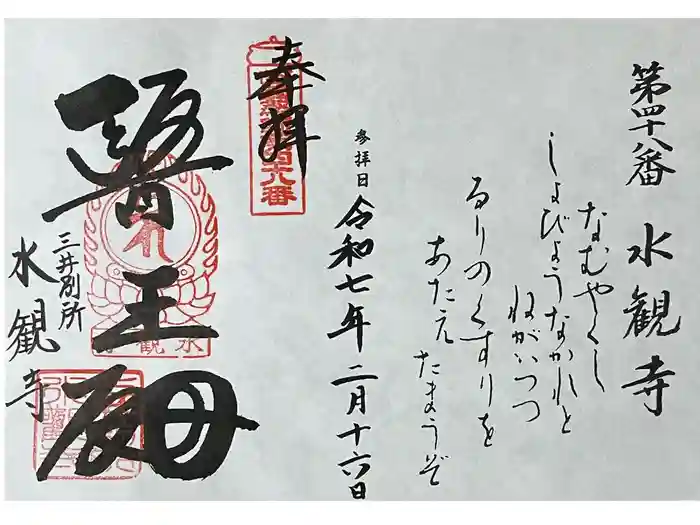 第四十八番 水観寺
なむやくし
しょびょうなかれと
ねがいつつ
るりのくすりを
あたえ たまうぞ
参拝日 令和七年 二月十六日
奉拝
醫王殿
水観寺
三井別所
水観寺